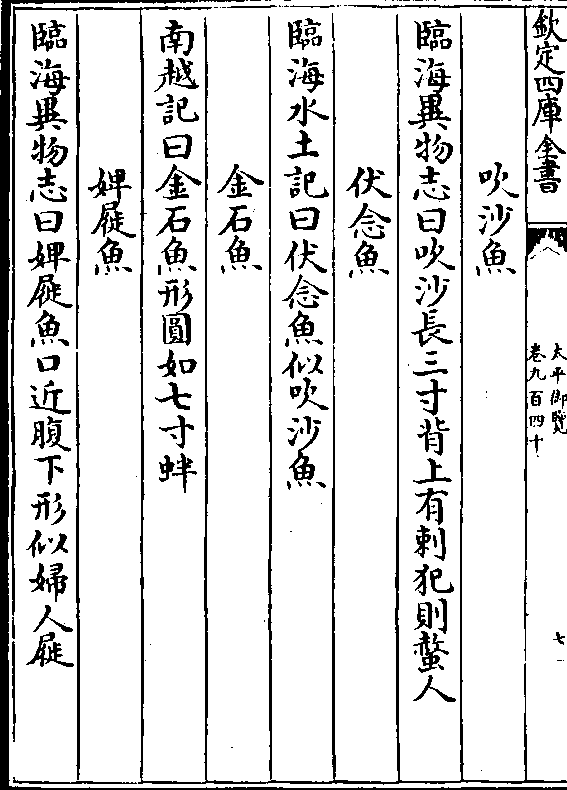 欽定四庫全書
太平御覽
卷九百四十
七
吹沙魚
臨海異物志曰吹沙長三寸背上有刺犯則螫人
伏念魚
臨海水土記曰伏念魚似吹沙魚
金石魚
南越記曰金石魚形圓如七寸蚌
婢屣魚
臨海異物志曰婢屣魚口近腹下形似婦人屣